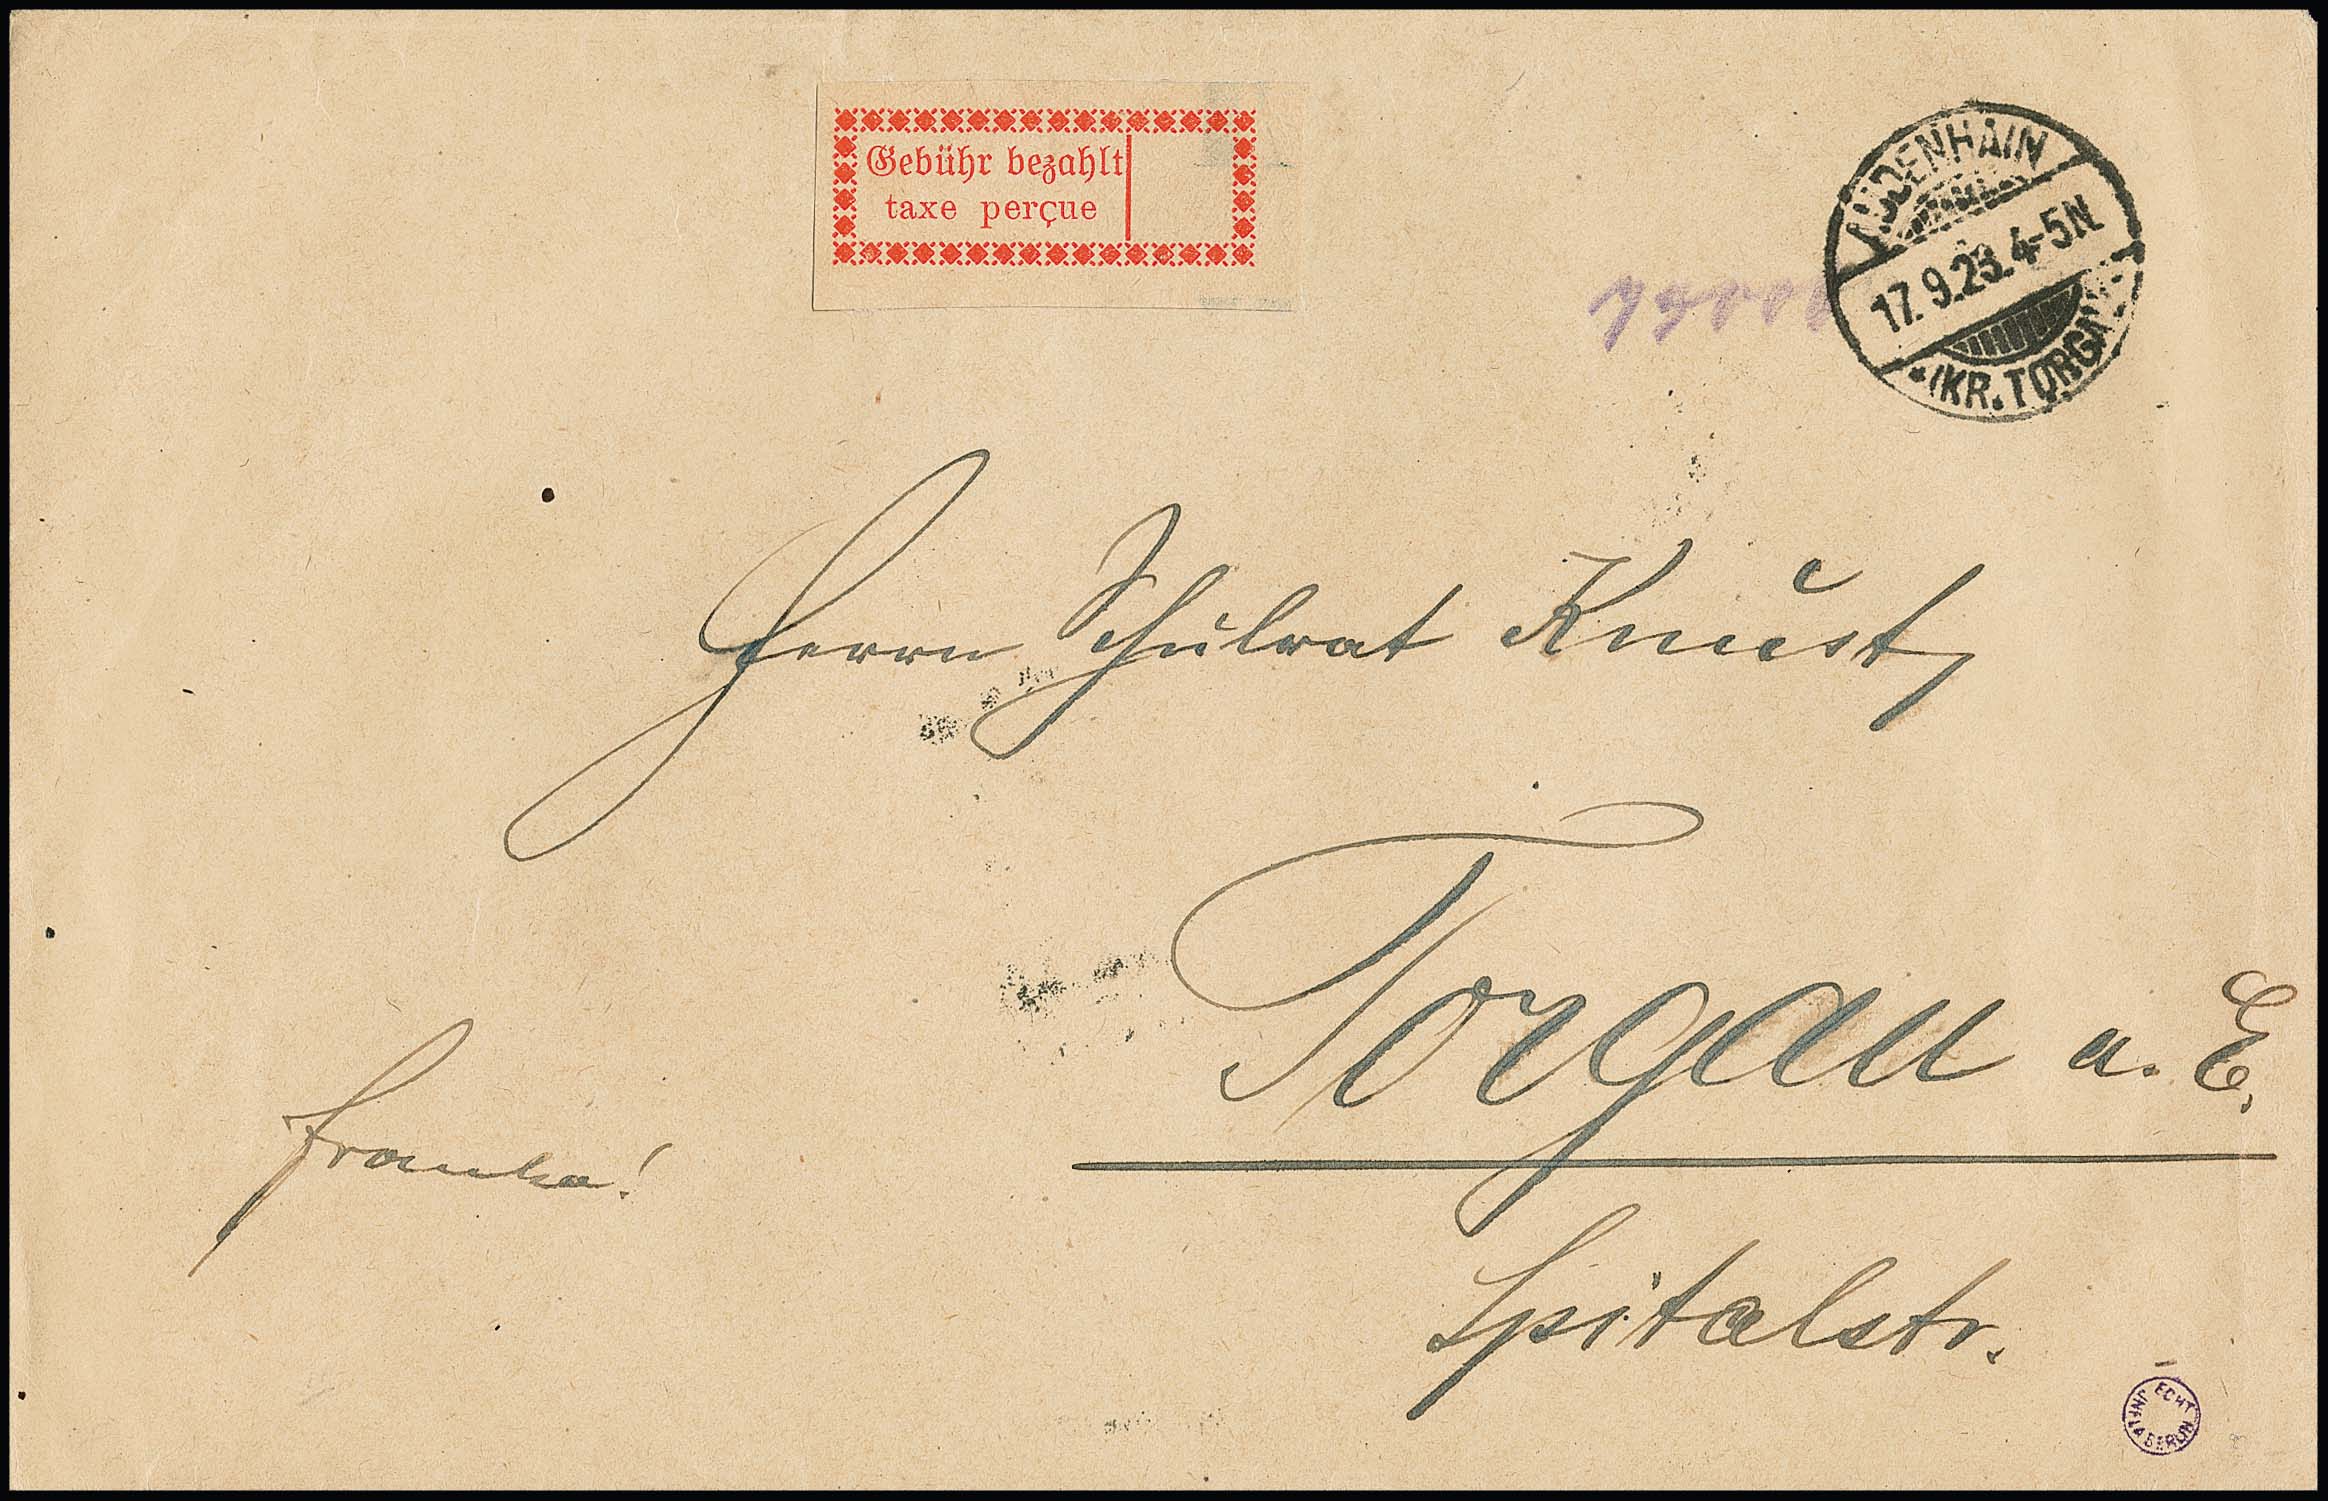 Gebühr bezahlt
taxe perçue
AUDENHAIN
17.9.23.4-5N
* (KR. TORGAU)
Herrn Schulrat Knust,
Torgau a. E.
Spitalstr.
franko!
ECHT
INFLA BERLIN